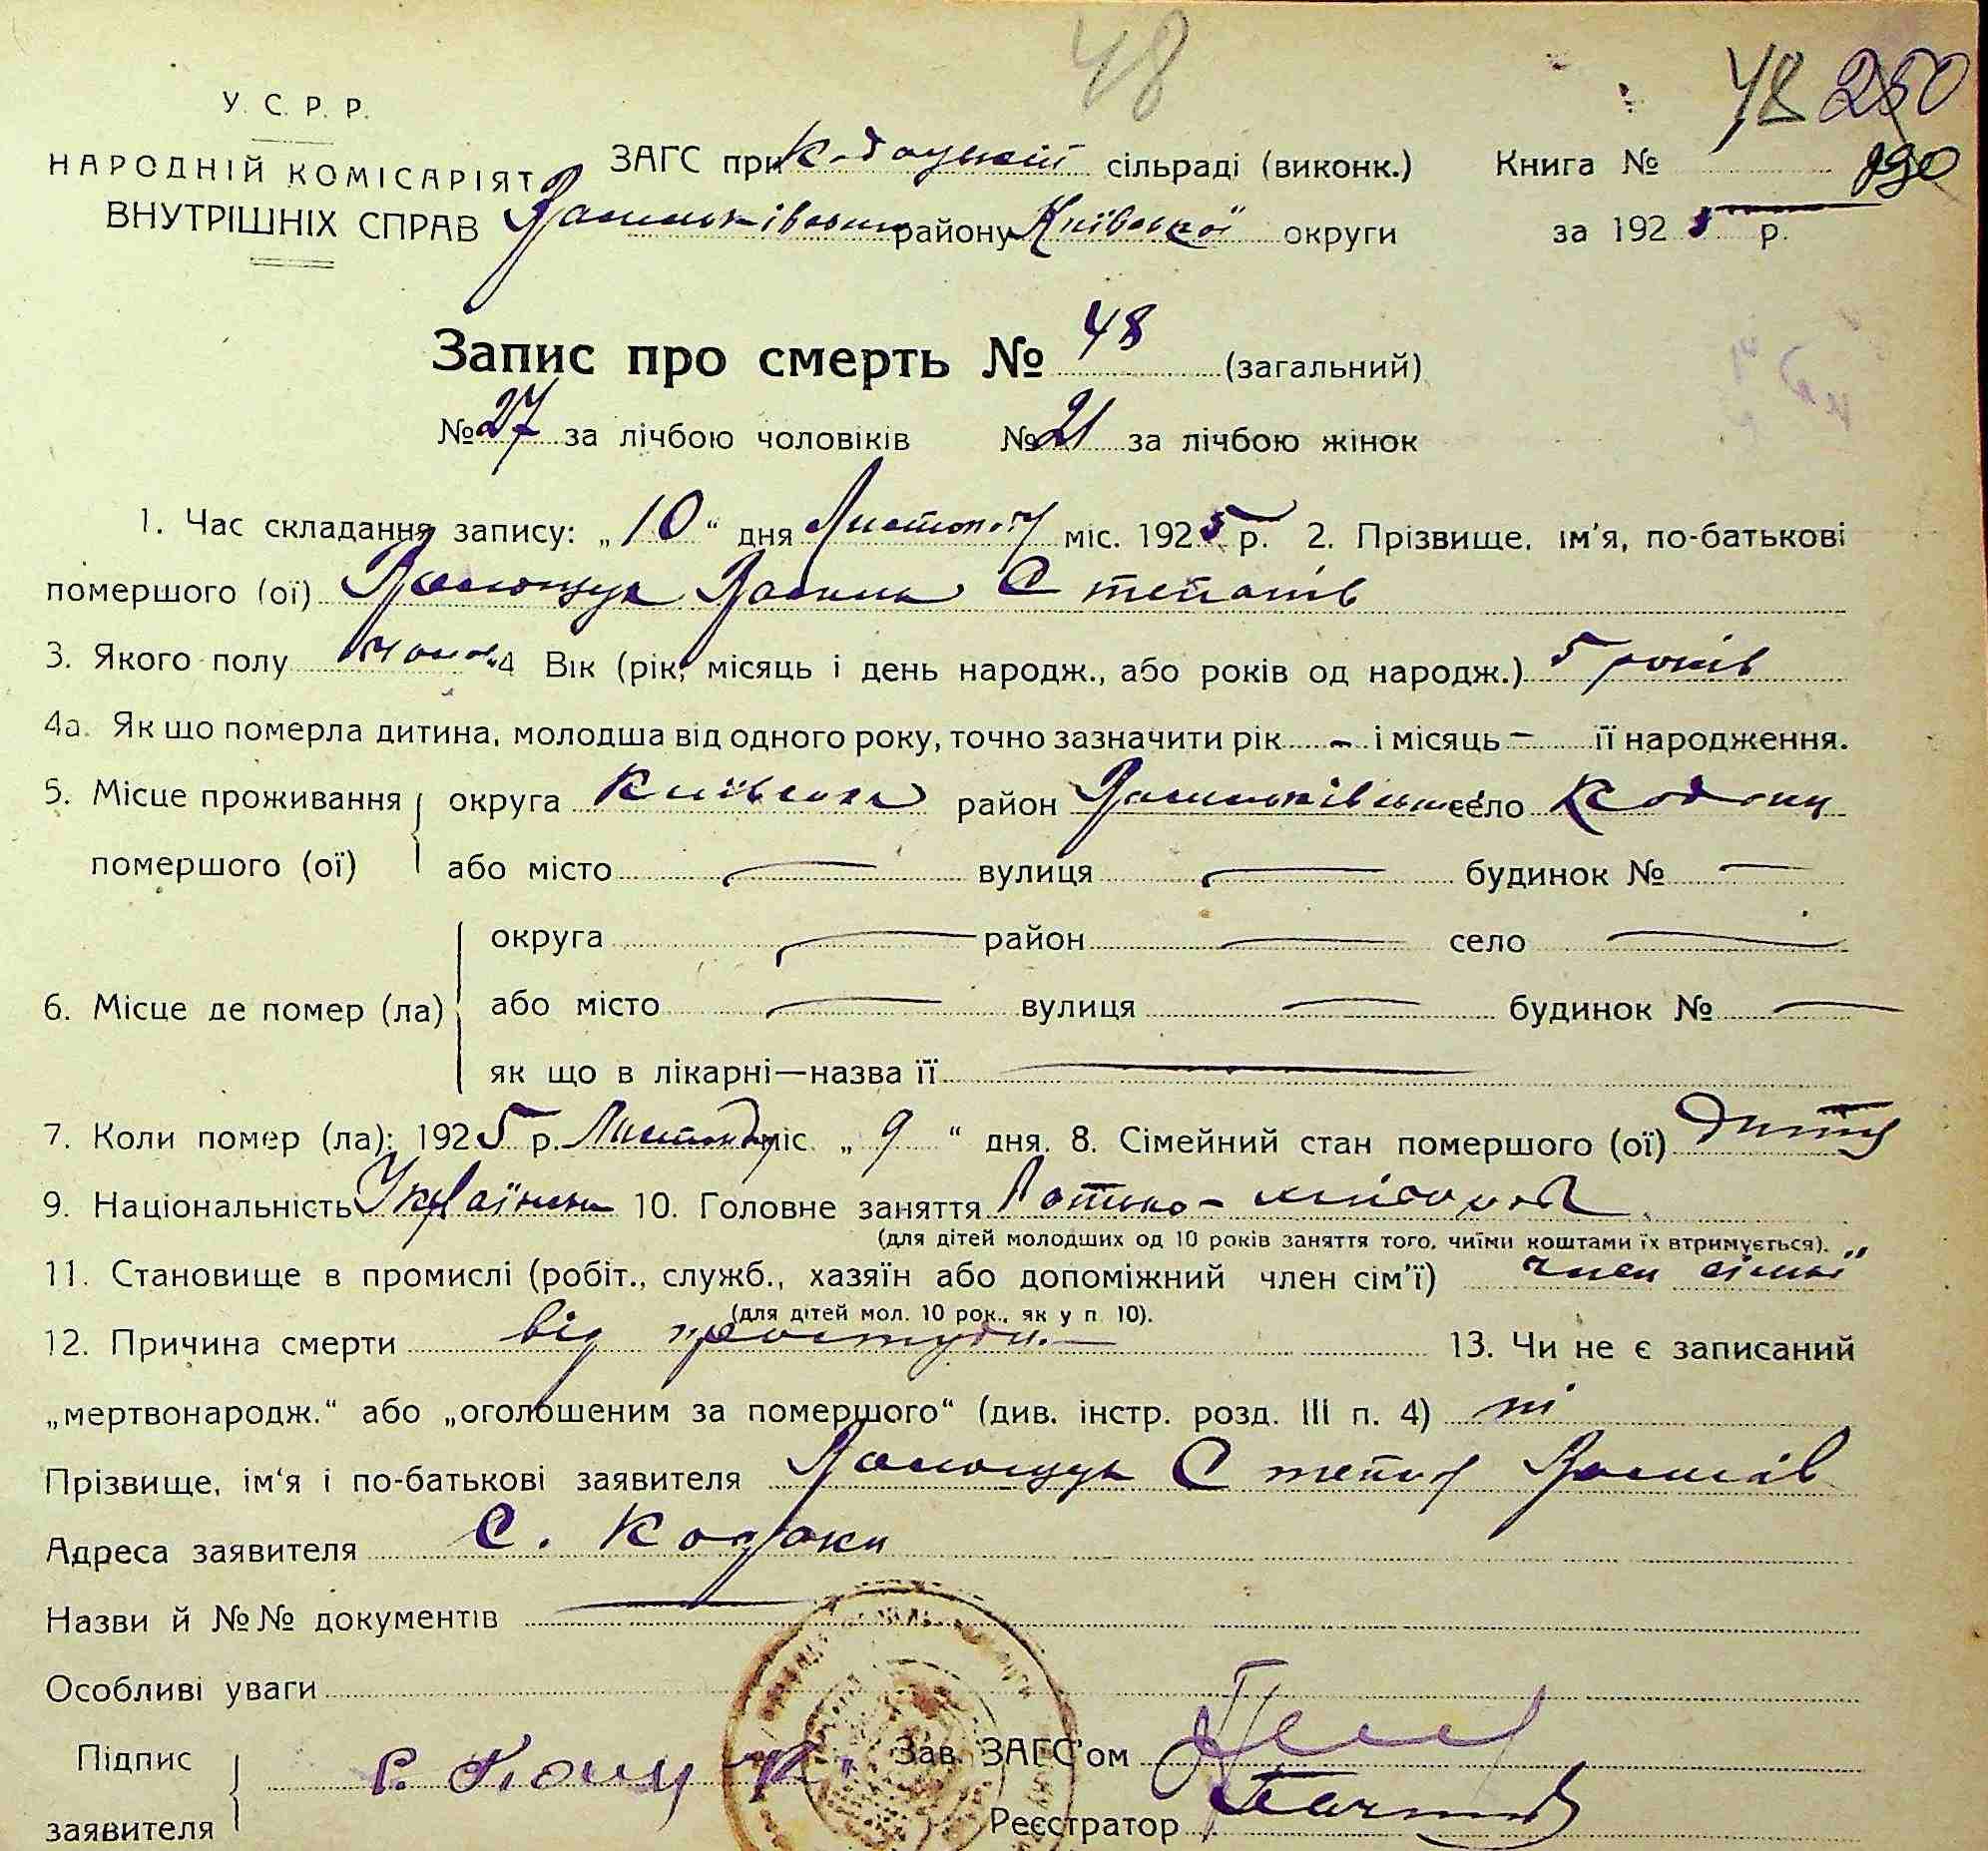 48
48 250
У. С. Р. Р.
НАРОДНІЙ КОМІСАРІЯТ ЗАГС при Кодацькій сільраді (виконк.) Книга № 290
ВНУТРІШНІХ СПРАВ Васильківськ району Київської округи за 1925 р.
Запис про смерть № 48 (загальний)
№ 27 за лічбою чоловіків № 21 за лічбою жінок
1. Час складання запису: „10“ дня Листопад міс. 1925 р. 2. Прізвище, ім'я, по-батькові
помершого (ої) Волощук Василь Степанів
3. Якого полу чолов. 4 Вік (рік, місяць і день народж., або років од народж.) 5 років
4а. Як що померла дитина, молодша від одного року, точно зазначити рік – і місяць – її народження.
5. Місце проживання округа Київська район Васильківськ село Кодаки
помершого (ої) або місто — вулиця — будинок № —
округа — район — село —
6. Місце де помер (ла) або місто — вулиця — будинок № —
як що в лікарні—назва її —
7. Коли помер (ла): 1925 р. Листопад міс. „9“ дня. 8. Сімейний стан помершого (ої) дитя
9. Національність Українець 10. Головне заняття
(для дітей молодших од 10 років заняття того, чиїми коштами їх втримується).
11. Становище в промислі (робіт., служб., хазяїн або допоміжний член сім'ї) член сімьї
(для дітей мол. 10 рок., як у п. 10).
12. Причина смерти від простуди. — 13. Чи не є записаний
„мертвонародж.“ або „оголошеним за помершого“ (див. інстр. розд. III п. 4) ні
Прізвище, ім'я і по-батькові заявителя Волощук Степан Василів
Адреса заявителя С. Кодаки
Назви й №№ документів —
Особливі уваги
Підпис Зав. ЗАГС'ом
заявителя Реєстратор